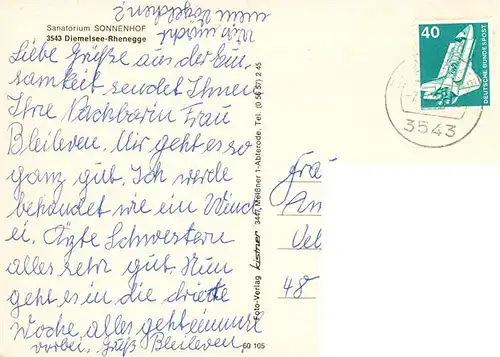 Sanatorium SONNENHOF
3543 Diemelsee-Rhenegge
Was macht
mein Vögelchen?
Liebe Grüße aus der Ein-
samkeit sendet Ihnen
Ihre Nachbarin Frau
Bleileven. Mir geht es so
ganz gut. Ich werde
behandelt wie ein Wind
ei. Ärzte Schwestern
alles sehr gut. Nun
geht es in die dritte
Woche, alles geht einmal
vorbei. Gruß Bleileven
Foto-Verlag kistner 3447 Meißner 1-Abterode. Tel. (0 56 57) 2 45
60 105
40
DEUTSCHE BUNDESPOST
3543
Frau
An
Vel
48